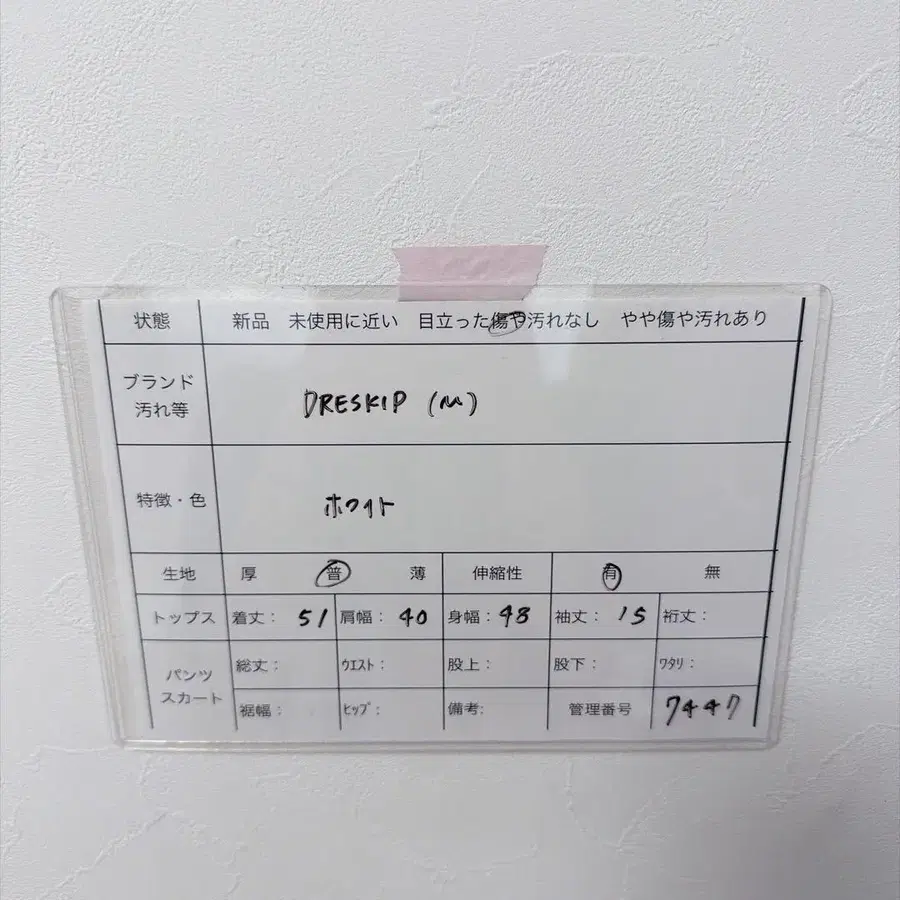 状態 新品 未使用に近い 目立った傷や汚れなし やや傷や汚れあり
ブランド
汚れ等
DRESKIP (M)
特徴・色 ホワイト
生地 厚 普 薄 伸縮性 有 無
トップス 着丈: 51 肩幅: 40 身幅: 48 袖丈: 15 裄丈:
パンツ
スカート
総丈: ウエスト: 股上: 股下: ワタリ:
裾幅: ヒップ: 備考: 管理番号 7447